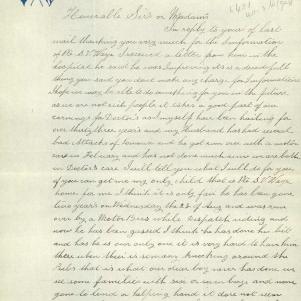 Honorable Sirs or Madams
In reply to yours of last
mail thanking you very much for the Information
of Pte S J Ways I received a letter from him in the
hospital he said he was Improving It is a wonderful
thing you and you dont make any charge for Information
I hope we may be able to do something for you in the future
as we are not rich people it takes a good part of our
earnings for Doctors as myself have been
for over thirty three years and my Husband has had several
bad attacks of and he got run over with a motor
car in February and has not done much since we are both
in Doctors care I will tell you what I will do for you
if you can get me my only child that is Pte S J Ways
home for me I think it is only fair he has been gone
two years on Wednesday the of Aug and was run
over by a Motor Bus while Despatch riding and
now he has been gassed I think he has done his bit
and has he is our only one it is very hard to have him
there when their is so many knocking around the
that is what our dear boy never has done we
see some families with six or seven boys and none
gone to lend a helping hand it does not seem